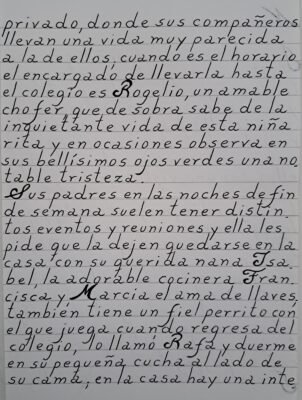 privado, donde sus compañeros
llevan una vida muy parecida
a la de ellos, cuando es el horario
el encargado de llevarla hasta
el colegio es Rogelio, un amable
chofer, que de sobra sabe de la
inquietante vida de esta niña
rita y en ocasiones observa en
sus bellísimos ojos verdes una no
table tristeza.
Sus padres en las noches de fin
de semana suelen tener distin
tos eventos y reuniones y ella les
pide que la dejen quedarse en la
casa con su querida nana Isa.
bel, la adorable cocinera Fran.
cisca y, Marcia el ama de llaves
también tiene un fiel perrito con
el que juega cuando regresa del
colegio, lo llamó Rafa y duerme
en su pequeña cucha al lado de
su cama; en la casa hay una inte.